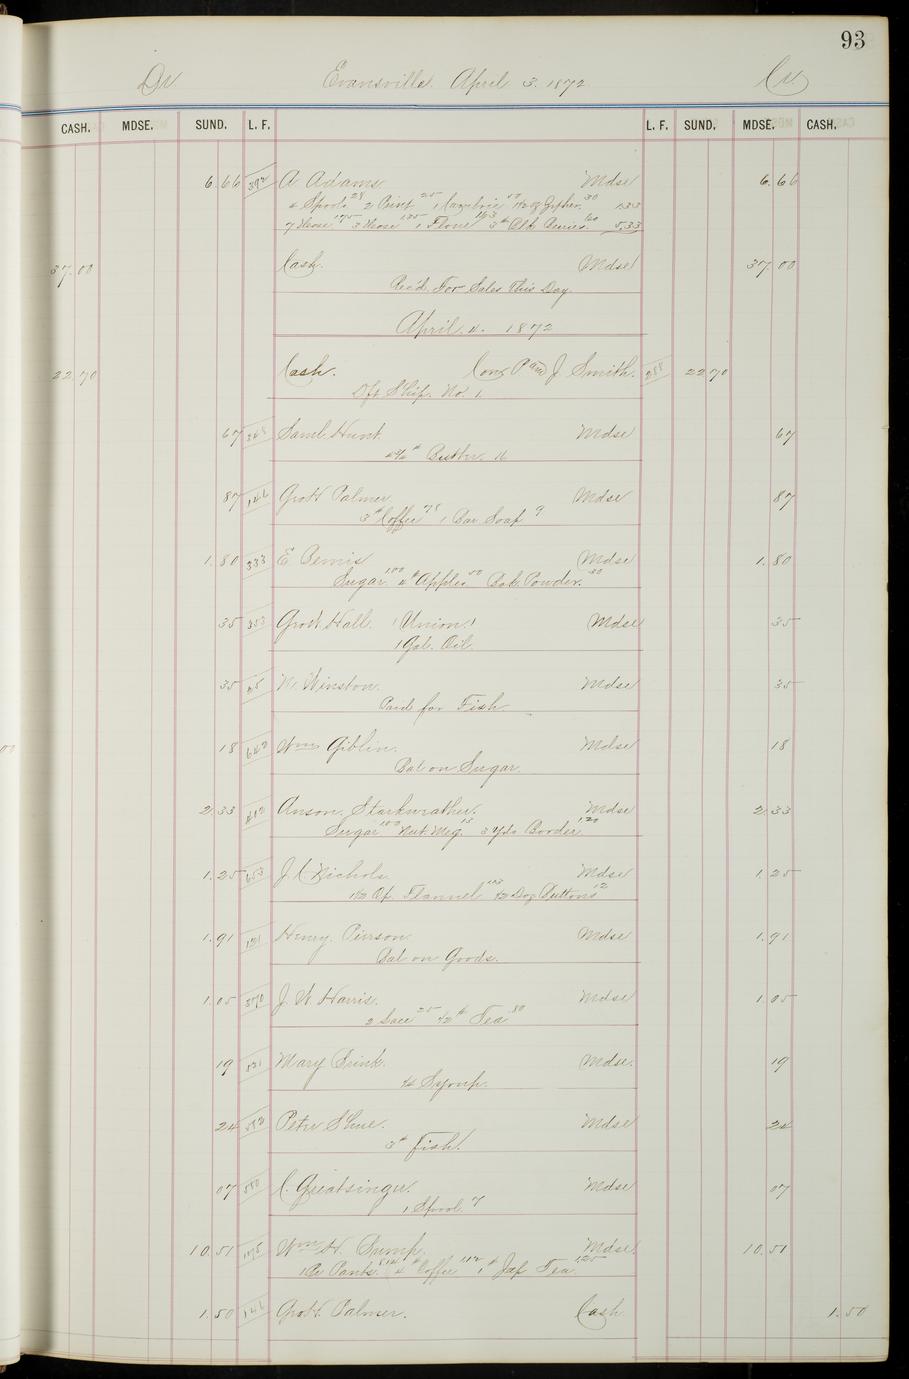 93
Dr Evansville April 3. 1872 Cr
CASH. MDSE. SUND. L. F. L. F. SUND. MDSE. CASH.
6.66 392 A. Adams Mdse 6.66
4 Spools 28 2 25 1 50 Zypher 30 1.33
7 Hose 175 3 Hose 135 1 Flour 163 3# Blk Berries 60 5.33
37.00 Cash. Mdse 37.00
Rec'd. For Sales This Day
April. 4. 1872
22.70 Cash. J. Smith. 288 22.70
Dft Ship. No. 1.
67 Saml Hunt Mdse 67
Butter. 16
87 146 Grott Palmer Mdse 87
3# Coffee 78 1 Bar Soap 9
1.80 333 E Bemis Mdse 1.80
Sugar 100 4# Apples 50 Bak. Powder. 30
35 353 Grott. Hall. (Union.) Mdse 35
1 Gal. Oil.
35 Winston. Mdse 35
Paid for Fish
18 642 Wm Giblin. Mdse 18
Bal on Sugar.
2.33 412 Anson. Starkwrather. Mdse 2.33
Sugar 100 Nut. Meg. 13 3 yds Border 1.20
1.25 653 J. C Nichols Mdse 1.25
1½ Op. Flannel 113 ½ Doz Buttons 12
1.91 121 Henry. Pierson Mdse 1.91
Bal on Goods.
1.05 370 J. W. Harris. Mdse 1.05
2 Lace 25 ½# Tea 80
19 521 Mary Brink. Mdse. 19
¼ Syrup.
24 Peter Shue. Mdse 24
3# Fish.
07 550 C. Greatsinger. Mdse 07
1 Spool. 7
10.51 Wm H. Bump Mdse. 10.51
1 Pr Pants. 814 4# Coffee 112 1# Jap Tea 1.25
1.50 146 Grott Palmer. Cash 1.50